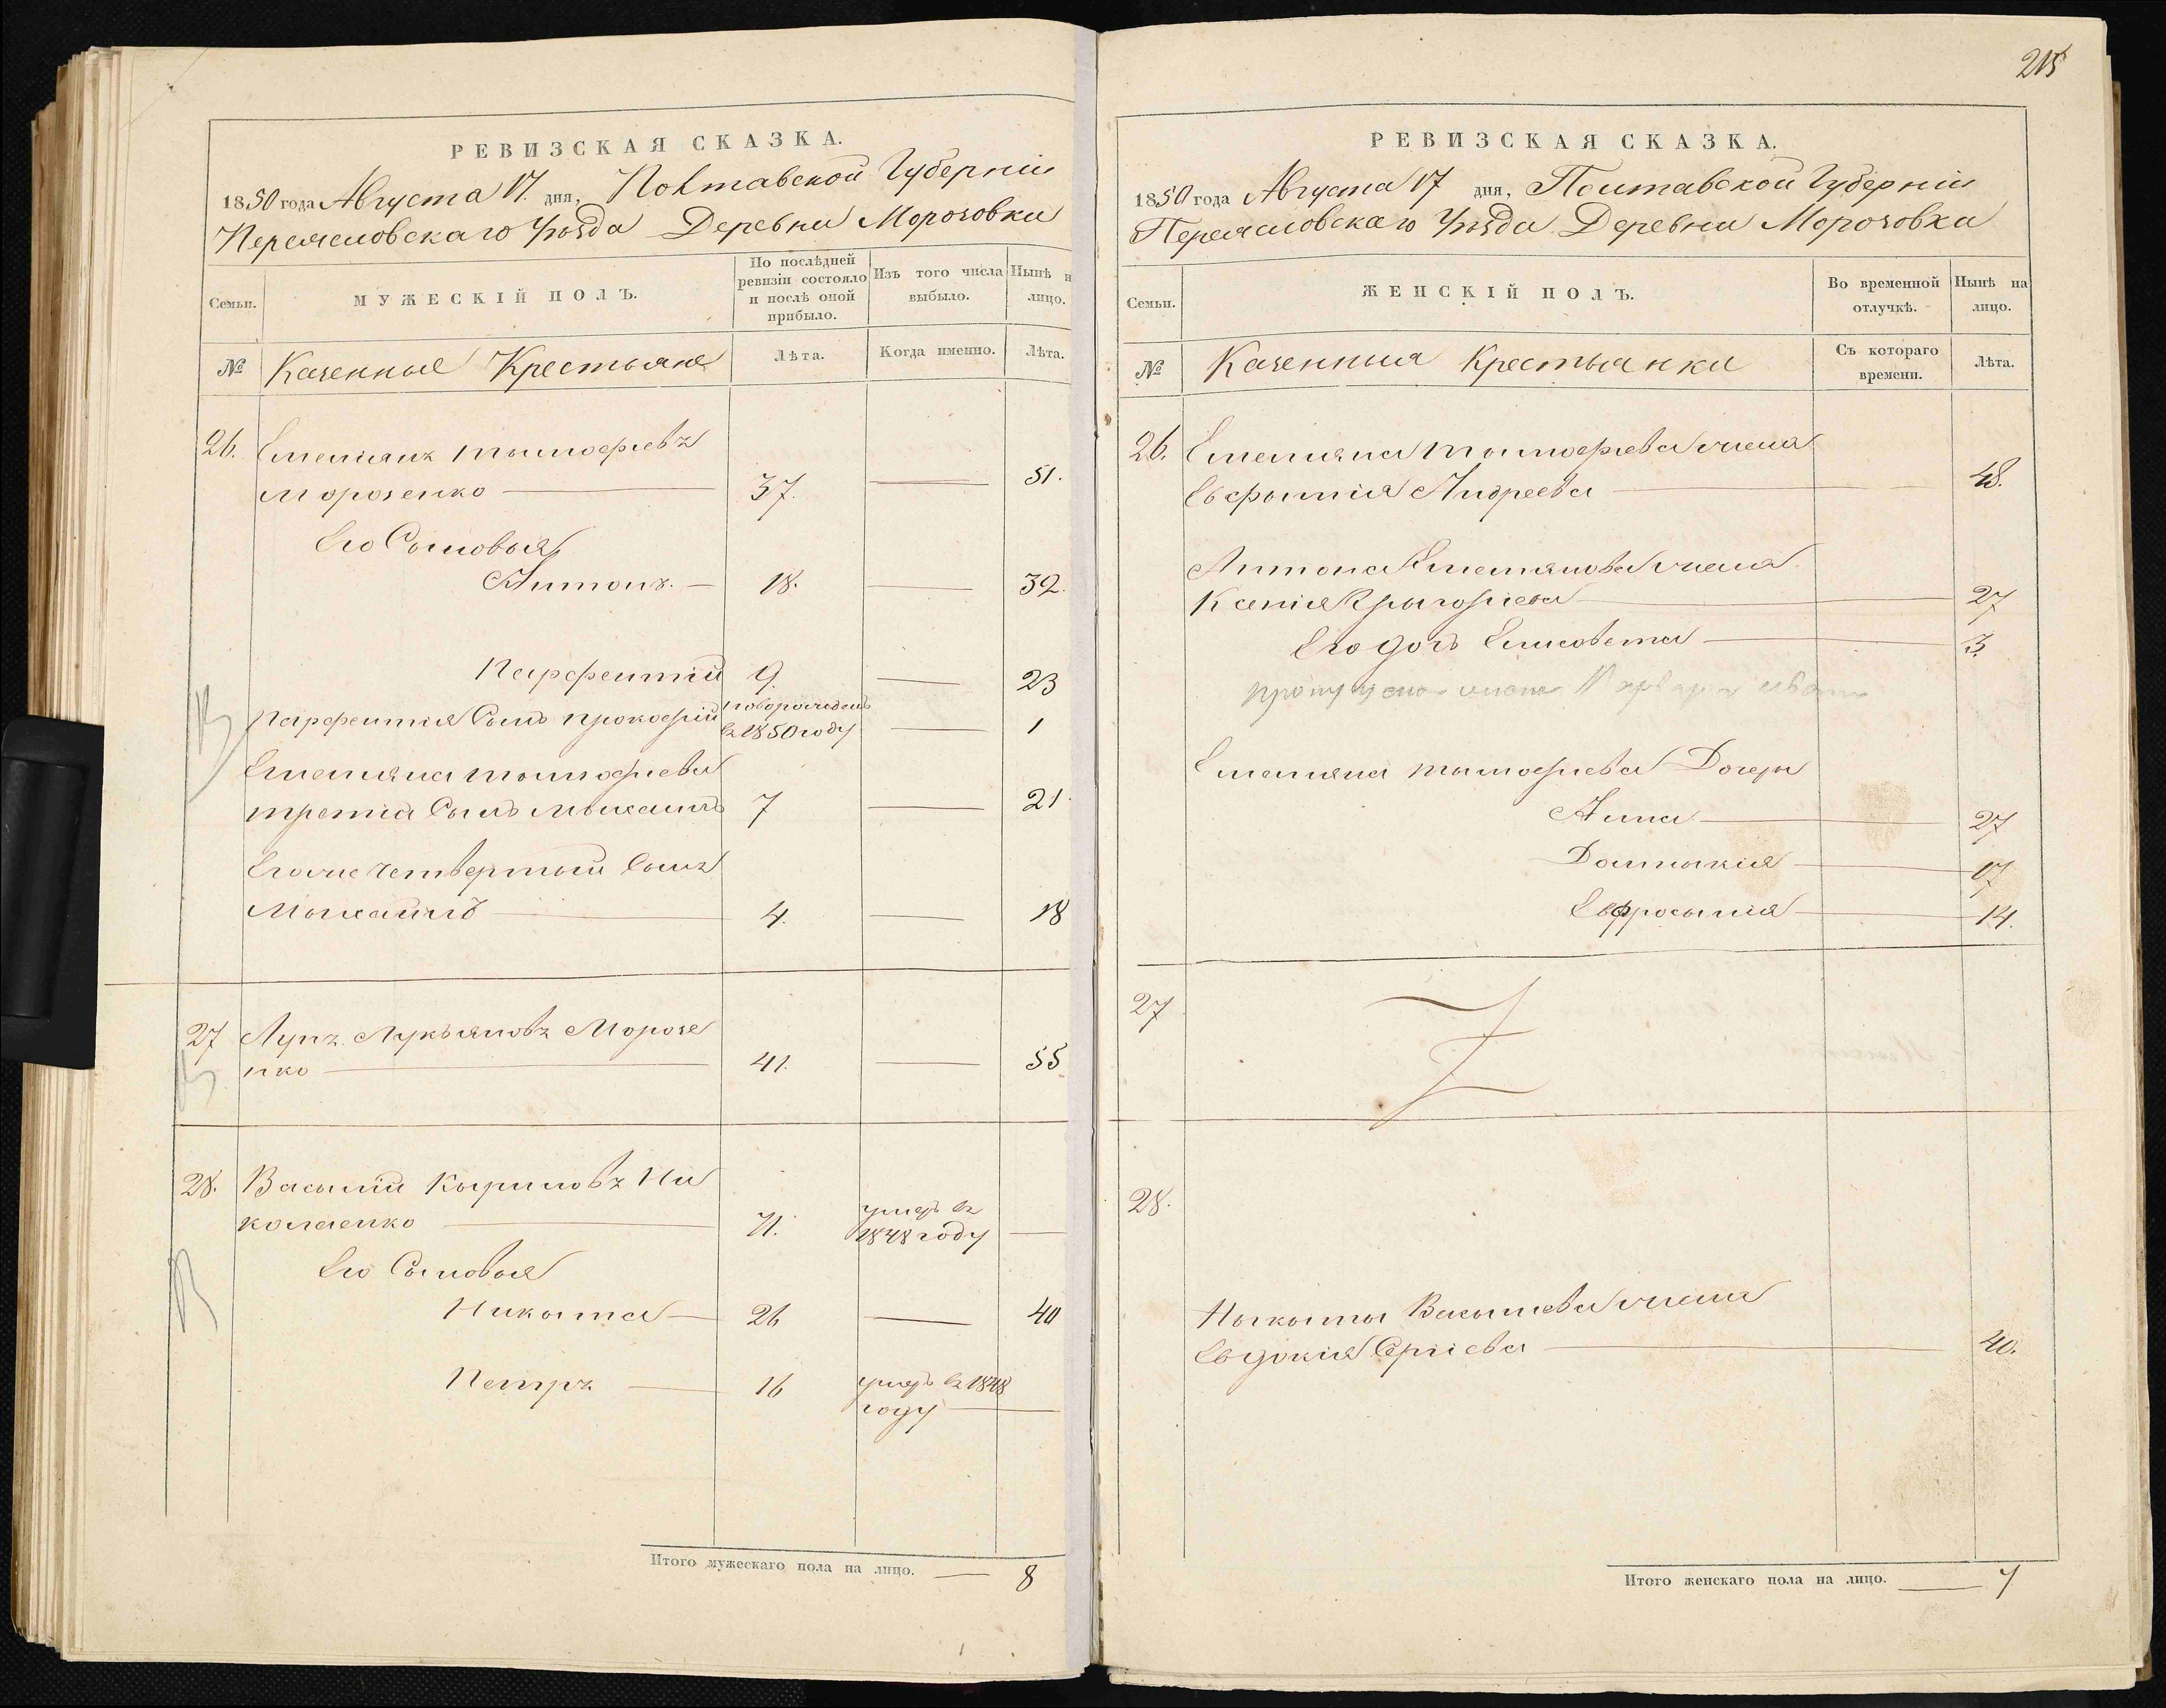 РЕВИЗСКАЯ СКАЗКА.
1850 года Августа 17. дня, Полтавской Губерніи
Переяславскаго Уѣзда Деревни Морозовки
Семьи.
МУЖЕСКІЙ ПОЛЪ.
По послѣдней ревизіи состояло и послѣ оной прибыло.
Изъ того числа выбыло.
Нынѣ н лицо.
№
Казенные Крестьяне
Лѣта.
Когда именно.
Лѣта.
26. Емельянъ Тымофіевъ
Морозенко 37. 51.
Его Сыновья
Антонъ. 18. 32.
Парфентій 9. 23
Парфентія Сынъ Прокофій новорожденъ въ 1850 году 1
Емельяна Тымофіева
третій Сынъ Мыхаилъ 7 21.
Его же четвертый Сынъ
Мыхаилъ 4. 18
27 Лупъ Лукьяновъ Морозе
нко 41. 55
28. Васылій Кыриловъ Ни
колаенко 71. умеръ въ 1848 году
Его Сыновья
Никыта 26 40
Петръ 16 умеръ въ 1848 году
Итого мужескаго пола на лицо. 8
215
РЕВИЗСКАЯ СКАЗКА.
1850 года Августа 17 дня, Полтавской Губерніи
Переяславскаго Уѣзда Деревни Морозовки
Семьи.
ЖЕНСКІЙ ПОЛЪ.
Во временной отлучкѣ.
Нынѣ на лицо.
№
Казенныя Крестьянки
Съ котораго времени.
Лѣта.
26. Емельяна Тымофіева жена
Евфымія Андреева 48.
Антона Емельянова жена
Ксенія Григоріева 27
Его дочь Елисавета 3.
пропущена жена
Емельяна Тымофіева Дочеры
Анна 27
Домникія 17
Евфросынія 14.
27
28.
Ныкыты Васылева жена
Евдокія Сергіева 40.
Итого женскаго пола на лицо. 7